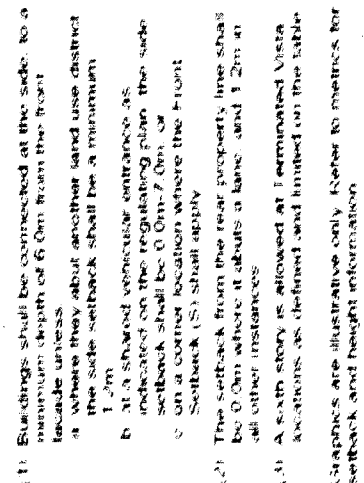 (1) Buildings shall be connected at the side, to a
minimum depth of 6.0m from the front
facade unless:
a where they abut another land use district
the side setback shall be a minimum
1.2m
b at a shared vehicular entrance as
indicated on the regulating plan the side
setback shall be 0.0m-7.0m, or
c on a corner location where the Front
Setback (S) shall apply
(2) The setback from the rear property line shall
be 0.0m where it abuts a lane, and 1.2m in
all other instances
(3) A sixth story is allowed at Terminated Vista
locations as defined and limited on the table
Graphics are illustrative only. Refer to metrics for
setback and height information